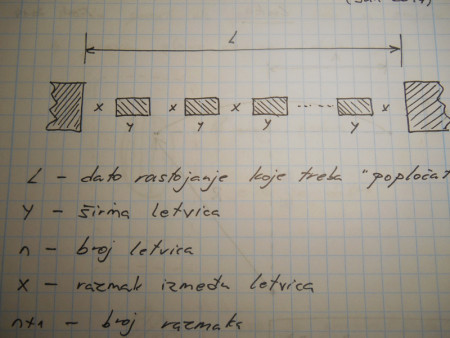 L
x x x x
y y y y
L - dato rastojanje koje treba "popločat
y - širina letvica
n - broj letvica
x - razmak između letvica
n+1 - broj razmaka